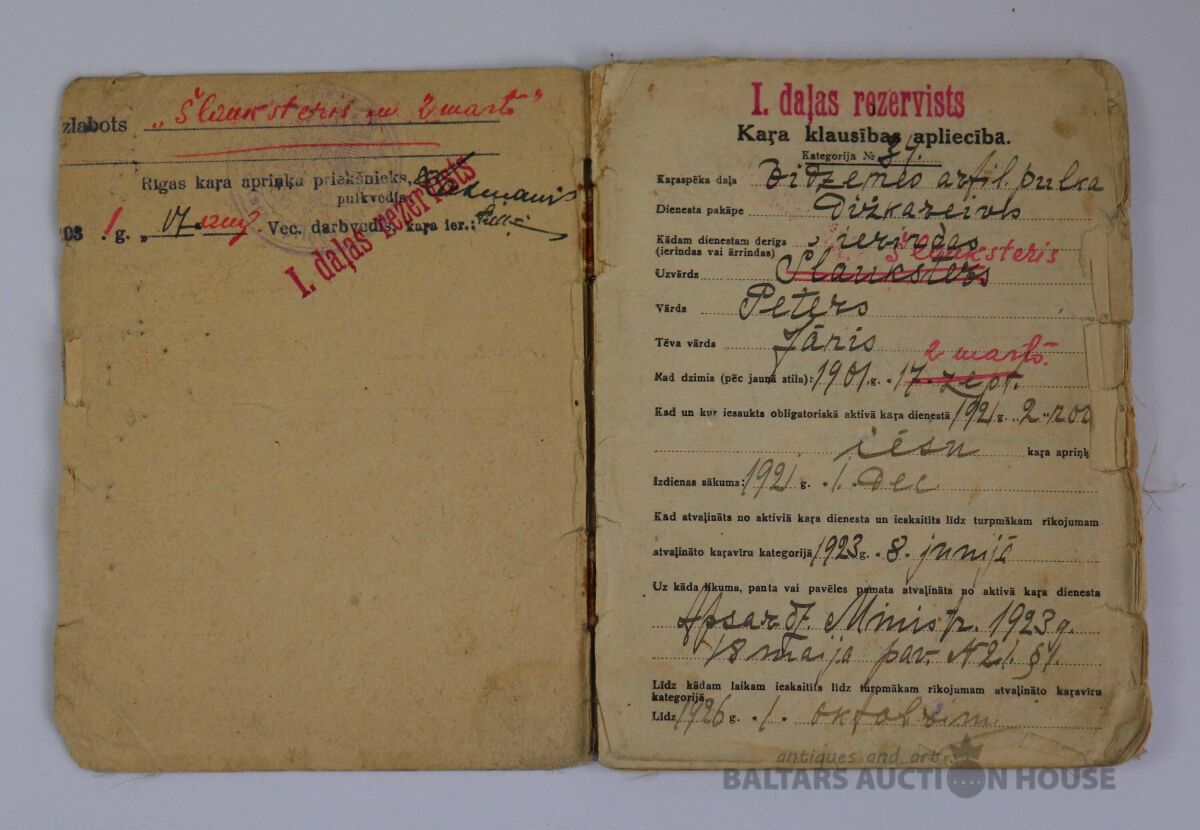 zlabots „Šlauksteris un 2 marts"
Rīgas kaŗa apriņķa priekšnieks,
pulkvedis
I. daļas rezervists
1 g. „17. Vec. darbvedis, kaŗa ier.:
I. daļas rezervists
Kaŗa klausības apliecība.
Kategorija № 39.
Kaŗaspēka daļa Vidzemes artil. pulka
Dienesta pakāpe Dižkareivis
Kādam dienestam derīgs ierindas
(ierindas vai ārrindas)
Šlauksteris
Uzvārds Slauksters
Vārds Peters
Tēva vārds Jāris
2 marts.
Kad dzimis (pēc jaunā stila): 1901 g. „17. sept.
Kad un kur iesaukts obligatoriskā aktīvā kaŗa dienestā 1921 g. „2"
kaŗa apriņķ
Izdienas sākums: 1921 g. „1." Dec
Kad atvaļināts no aktīviā kaŗa dienesta un ieskaitīts līdz turpmākam rīkojumam
atvaļināto kaŗavīru kategorijā 1923 g. „8. junijā
Uz kāda likuma, panta vai pavēles pamata atvaļināts no aktīvā kaŗa dienesta
Apsardz. Ministr. 1923 g.
18 maija pav. N 21. § 1.
Līdz kādam laikam ieskaitīts līdz turpmākam rīkojumam atvaļināto kaŗavīru
kategorijā
Līdz 1926 g. „1" oktobrim.
antiques and art
BALTARS AUCTION HOUSE